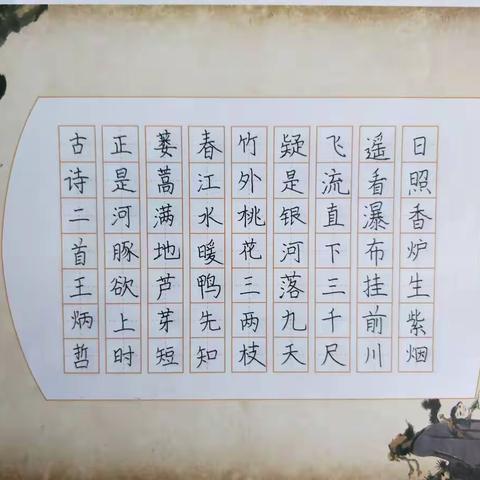 日照香炉生紫烟
遥看瀑布挂前川
飞流直下三千尺
疑是银河落九天
竹外桃花三两枝
春江水暖鸭先知
蒌蒿满地芦芽短
正是河豚欲上时
古诗二首王炳哲